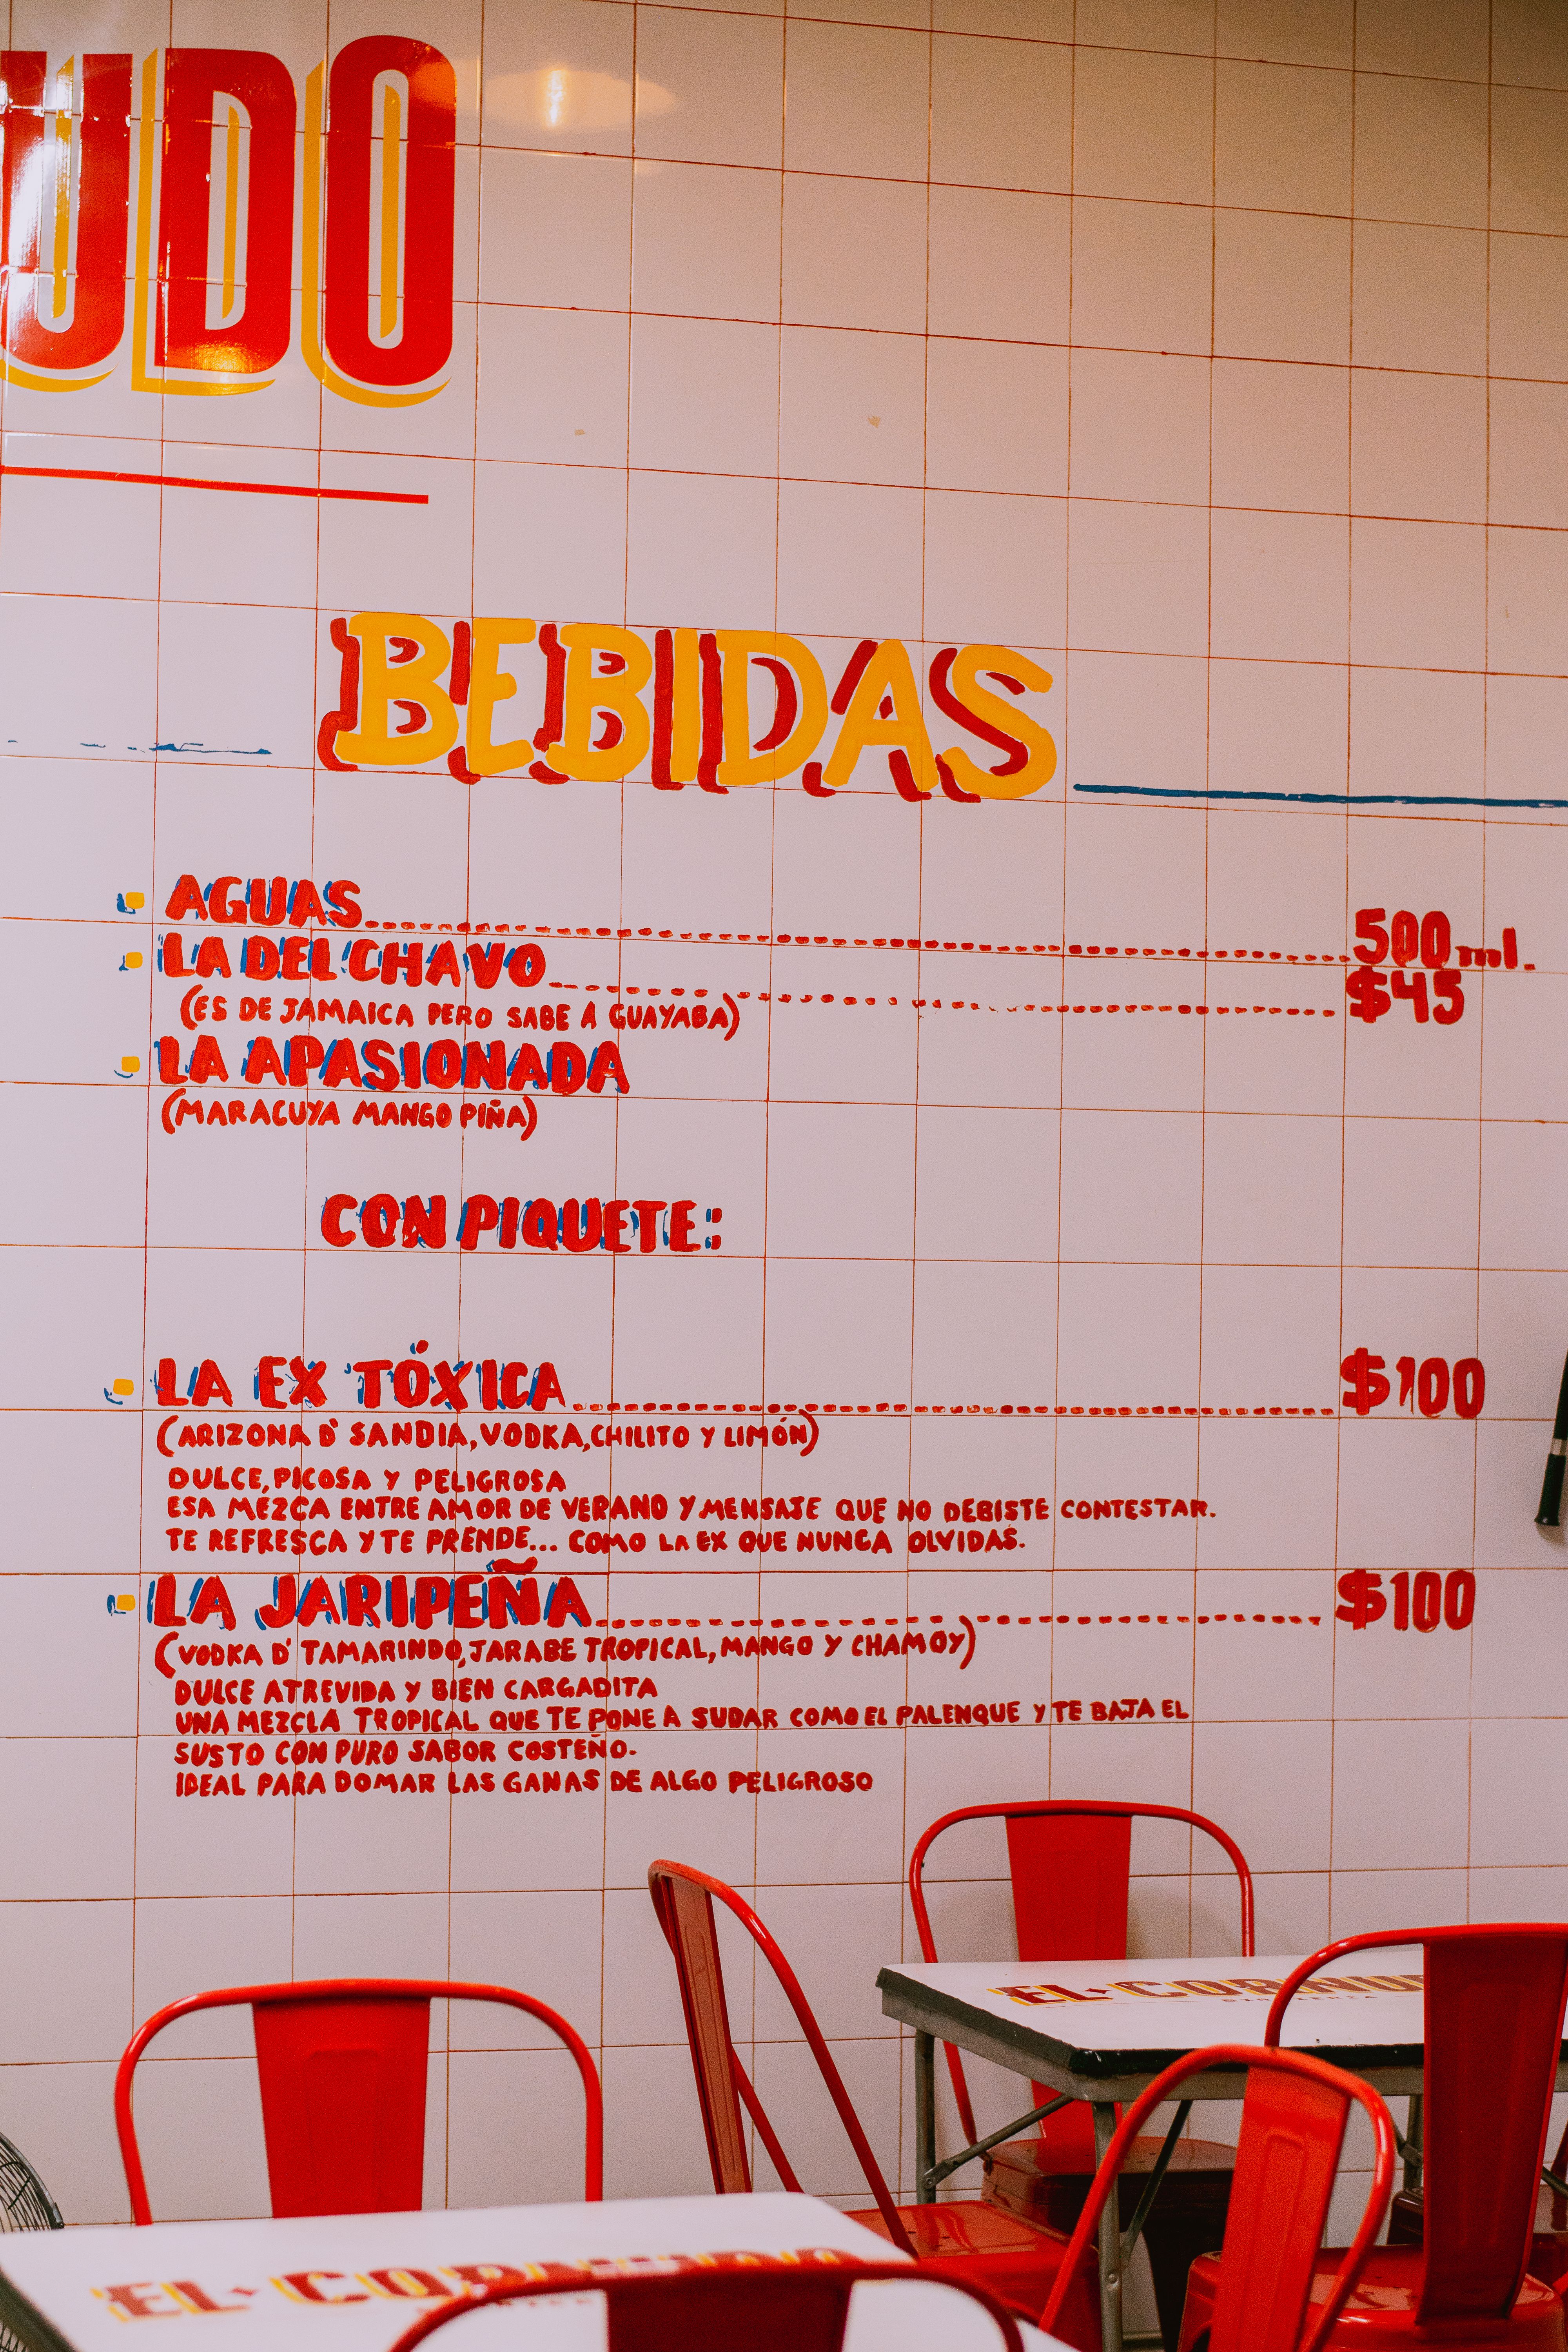 UDO
BEBIDAS
AGUAS 500 ml.
LA DEL CHAVO $45
(ES DE JAMAICA PERO SABE A GUAYABA)
LA APASIONADA
(MARACUYA MANGO PIÑA)
CON PIQUETE:
LA EX TÓXICA $100
(ARIZONA D' SANDIA, VODKA, CHILITO Y LIMÓN)
DULCE, PICOSA Y PELIGROSA
ESA MEZCA ENTRE AMOR DE VERANO Y MENSAJE QUE NO DEBISTE CONTESTAR.
TE REFRESCA Y TE PRENDE... COMO LA EX QUE NUNCA OLVIDAS.
LA JARIPEÑA $100
(VODKA D' TAMARINDO, JARABE TROPICAL, MANGO Y CHAMOY)
DULCE ATREVIDA Y BIEN CARGADITA
UNA MEZCLA TROPICAL QUE TE PONE A SUDAR COMO EL PALENQUE Y TE BAJA EL
SUSTO CON PURO SABOR COSTEÑO.
IDEAL PARA DOMAR LAS GANAS DE ALGO PELIGROSO
EL CORNU
EL CORNUDO